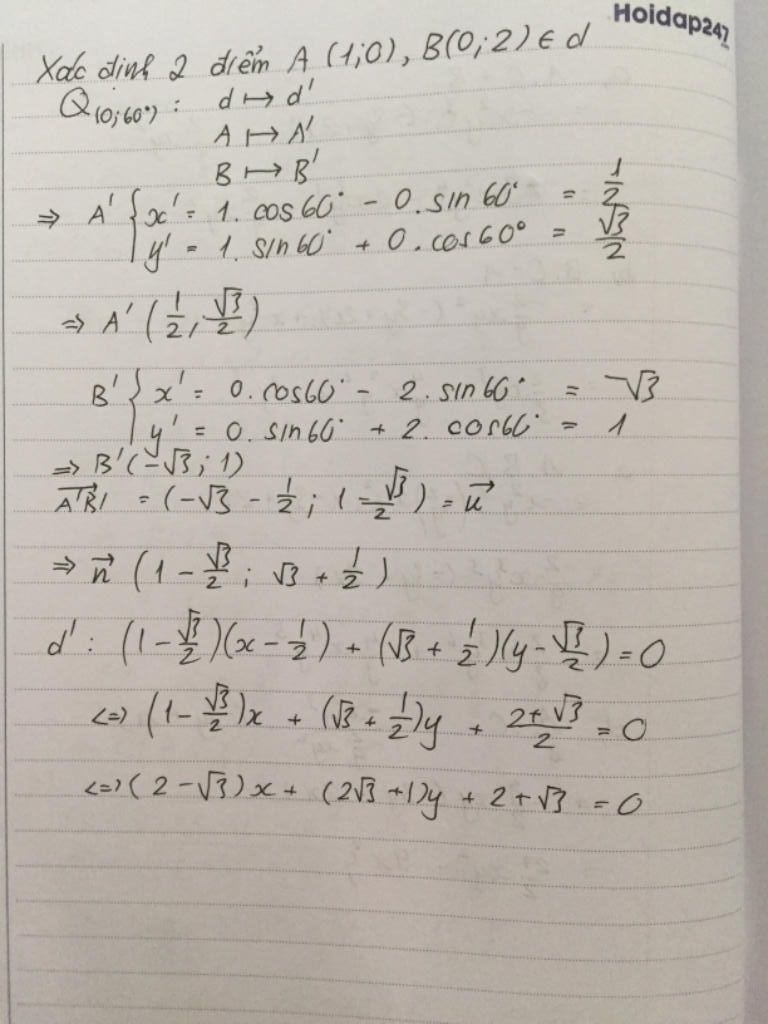 Hoidap247
Xác định 2 điểm A (1;0), B(0;2) ∈ d
Q(0;60°) : d ↦ d'
A ↦ A'
B ↦ B'
⇒ A' { x' = 1. cos60° - 0. sin 60° = 1/2
y' = 1. sin60° + 0. cos60° = √3/2
⇒ A' (1/2, √3/2)
B' { x' = 0. cos60° - 2. sin60° = -√3
y' = 0. sin60° + 2. cos60° = 1
⇒ B' (-√3; 1)
A'B' = (-√3 - 1/2; 1 - √3/2) = u
⇒ n (1 - √3/2; √3 + 1/2)
d' : (1 - √3/2)(x - 1/2) + (√3 + 1/2)(y - √3/2) = 0
<=> (1 - √3/2)x + (√3 + 1/2)y + (2+√3)/2 = 0
<=> (2 - √3)x + (2√3 + 1)y + 2 + √3 = 0